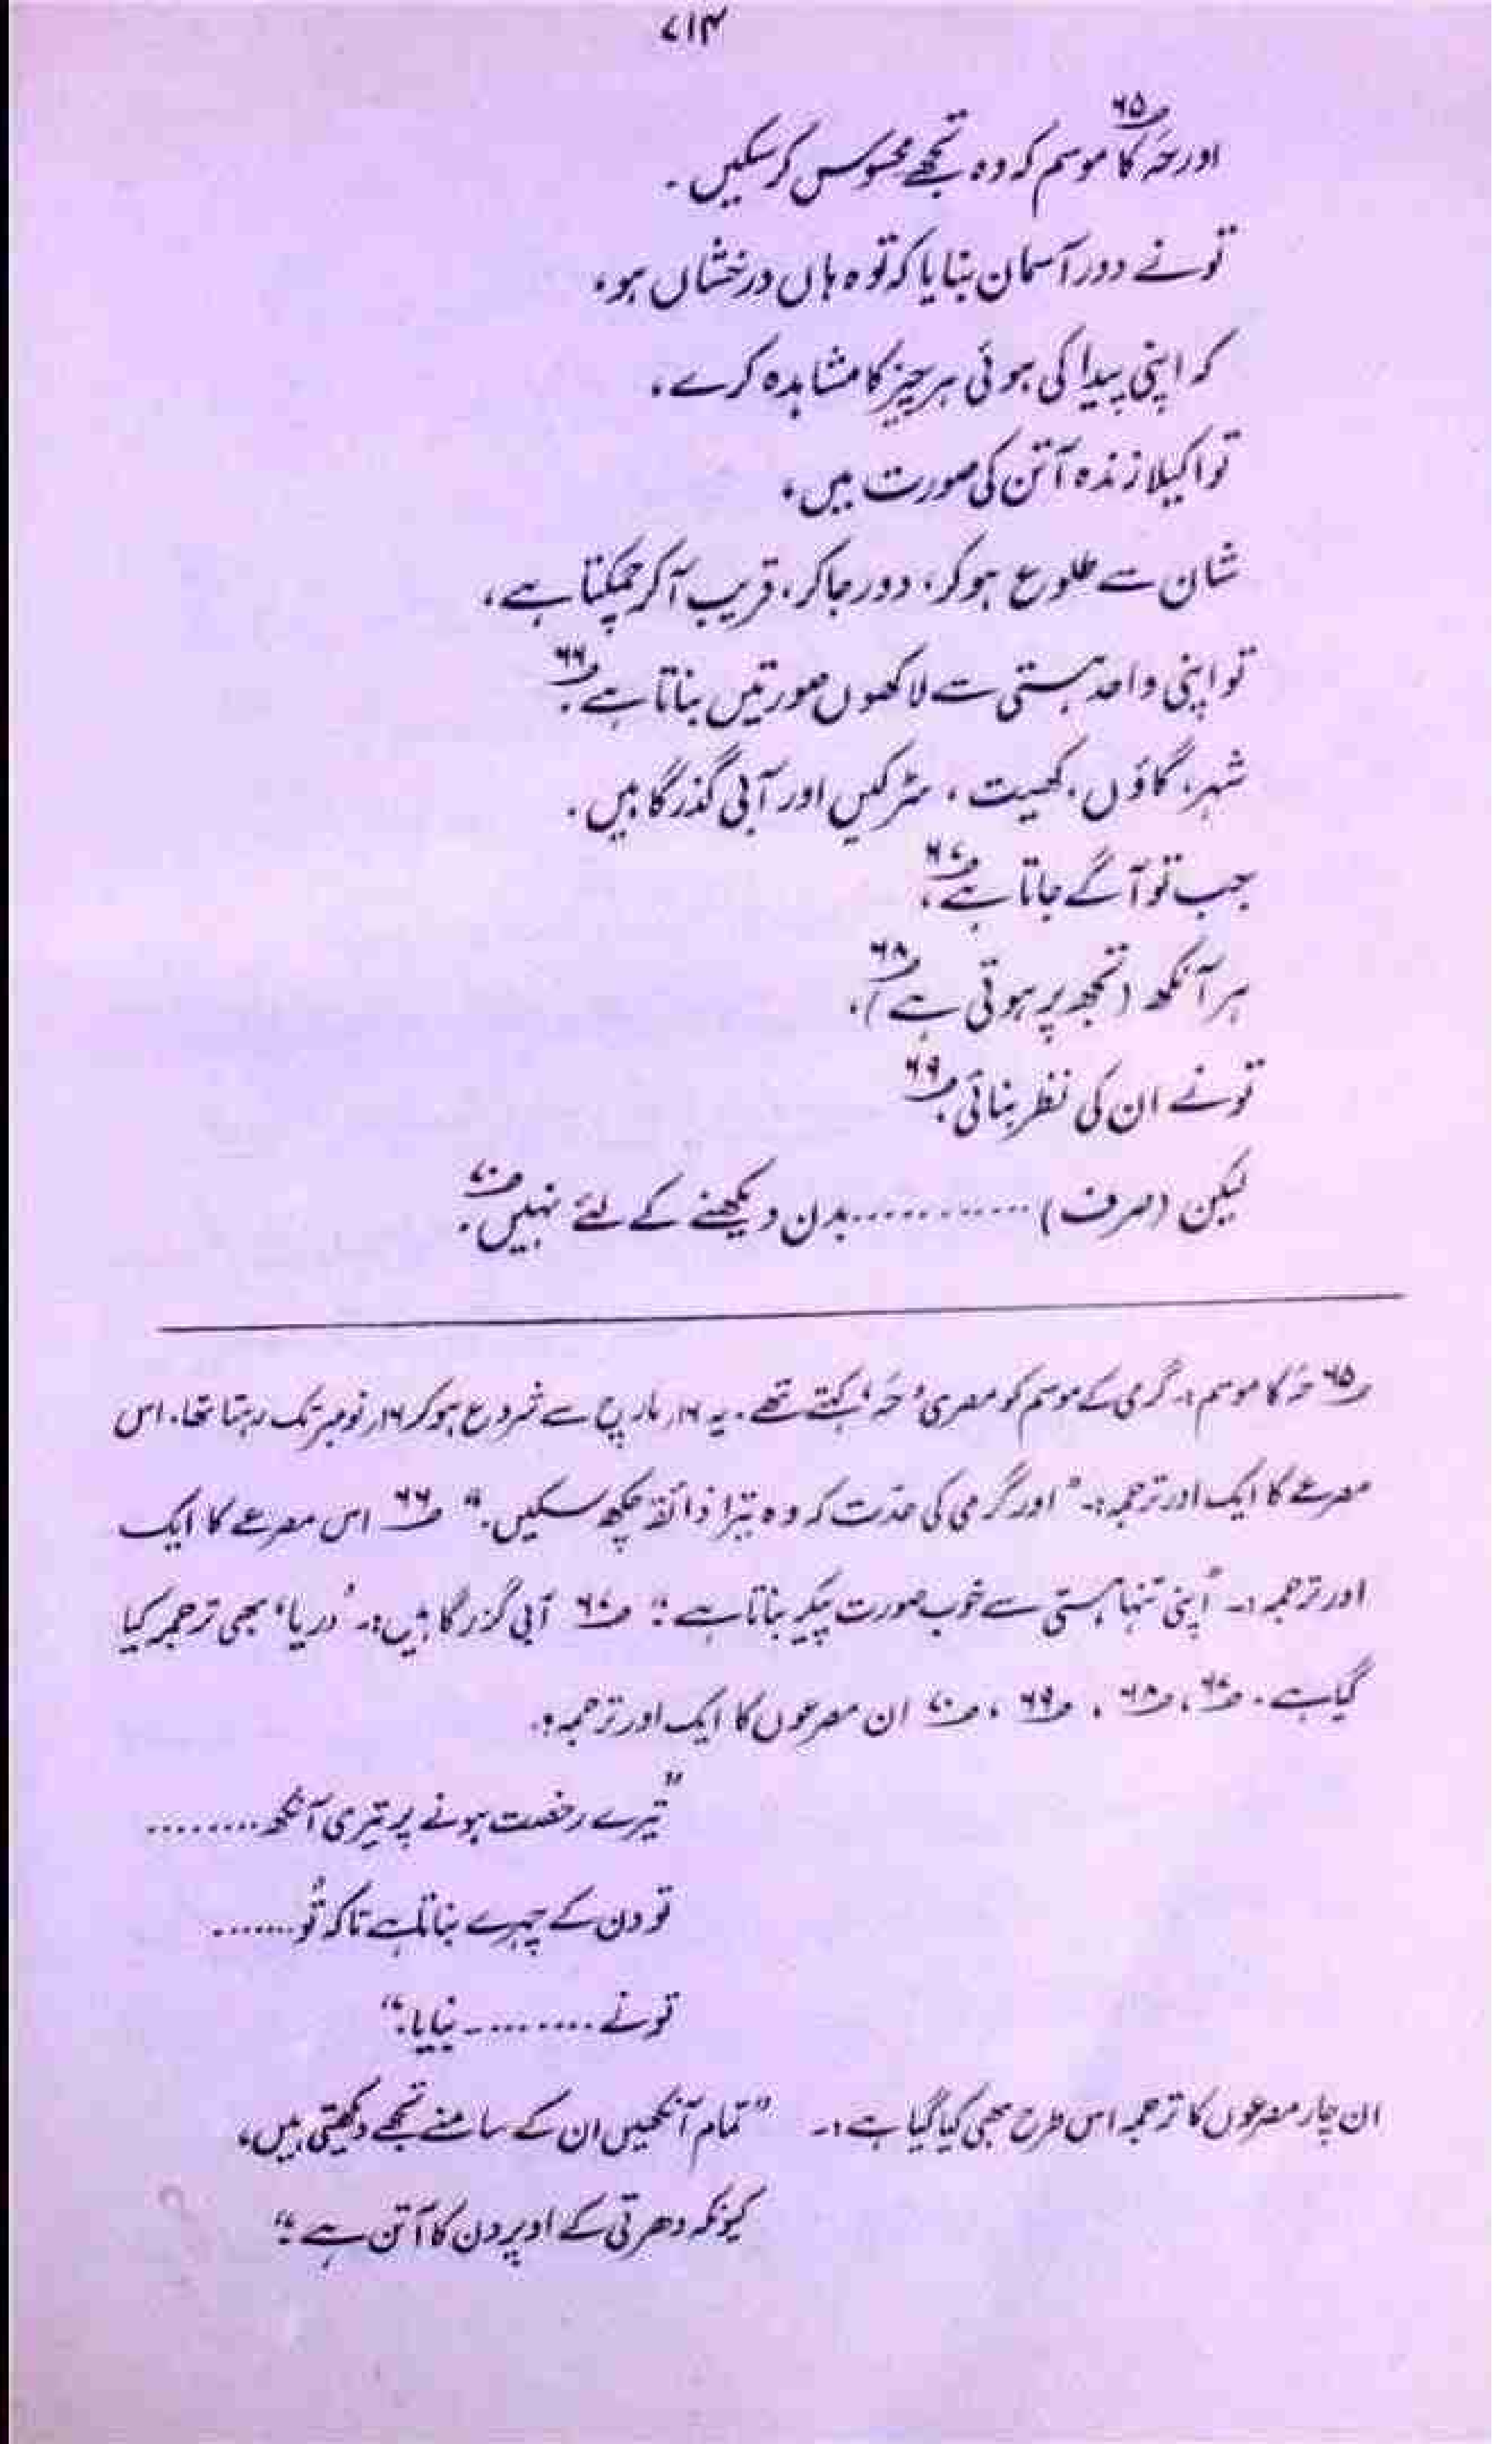 ۷۱۴
اور حَہ کا ؃۶۵ موسم کہ وہ تجھے محسوس کر سکیں ۔
تونے دور آسمان بنایا کہ تو وہاں درخشاں ہو،
کہ اپنی پیدا کی ہوئی ہر چیز کا مشاہدہ کرے ،
تو اکیلا زندہ آتن کی صورت میں ،
شان سے طلوع ہو کر ، دور جا کر ، قریب آ کر چمکتا ہے ،
تو اپنی واحد ہستی سے لاکھوں صورتیں بناتا ہے ؃۶۶ :
شہر ، گاؤں ، کھیت ، سڑکیں اور آبی گذرگاہیں ۔
جب تو آگے جاتا ہے ؃۶۷ ،
ہر آنکھ ( تجھ پر ہوتی ہے ) ؃۶۸ ،
تونے ان کی نظر بنائی ؃۶۹ ،
لیکن (صرف) ............ بدن دیکھنے کے لئے نہیں ؃۷۰ :
؃۶۵ حَہ کا موسم :۔ گرمی کے موسم کو مصری ’حَہ‘ کہتے تھے ۔ یہ ۱۶ر مارچ سے شروع ہو کر ۱۶ر نومبر تک رہتا تھا ۔ اس
مصرعے کا ایک اور ترجمہ :۔ " اور گرمی کی حدّت کہ وہ تیرا ذائقہ چکھ سکیں ۔" ؃۶۶ اس مصرعے کا ایک
اور ترجمہ :۔ "اپنی تنہا ہستی سے خوب صورت پیکر بناتا ہے :" ؃۶۷ آبی گزرگاہیں :۔ ’دریا‘ بھی ترجمہ کیا
گیا ہے ۔ ؃۶۷ ، ؃۶۸ ، ؃۶۹ ، ؃۷۰ ان مصرعوں کا ایک اور ترجمہ :۔
"تیرے رخصت ہونے پر تیری آنکھ .........
تو دن کے چہرے بناتا ہے تاکہ تُو .......
تونے ......... بنایا ۔"
ان چار مصرعوں کا ترجمہ اس طرح بھی کیا گیا ہے :۔ " تمام آنکھیں ان کے سامنے تجھے دیکھتی ہیں ،
کیونکہ دھرتی کے اوپر دن کا آتن ہے :"